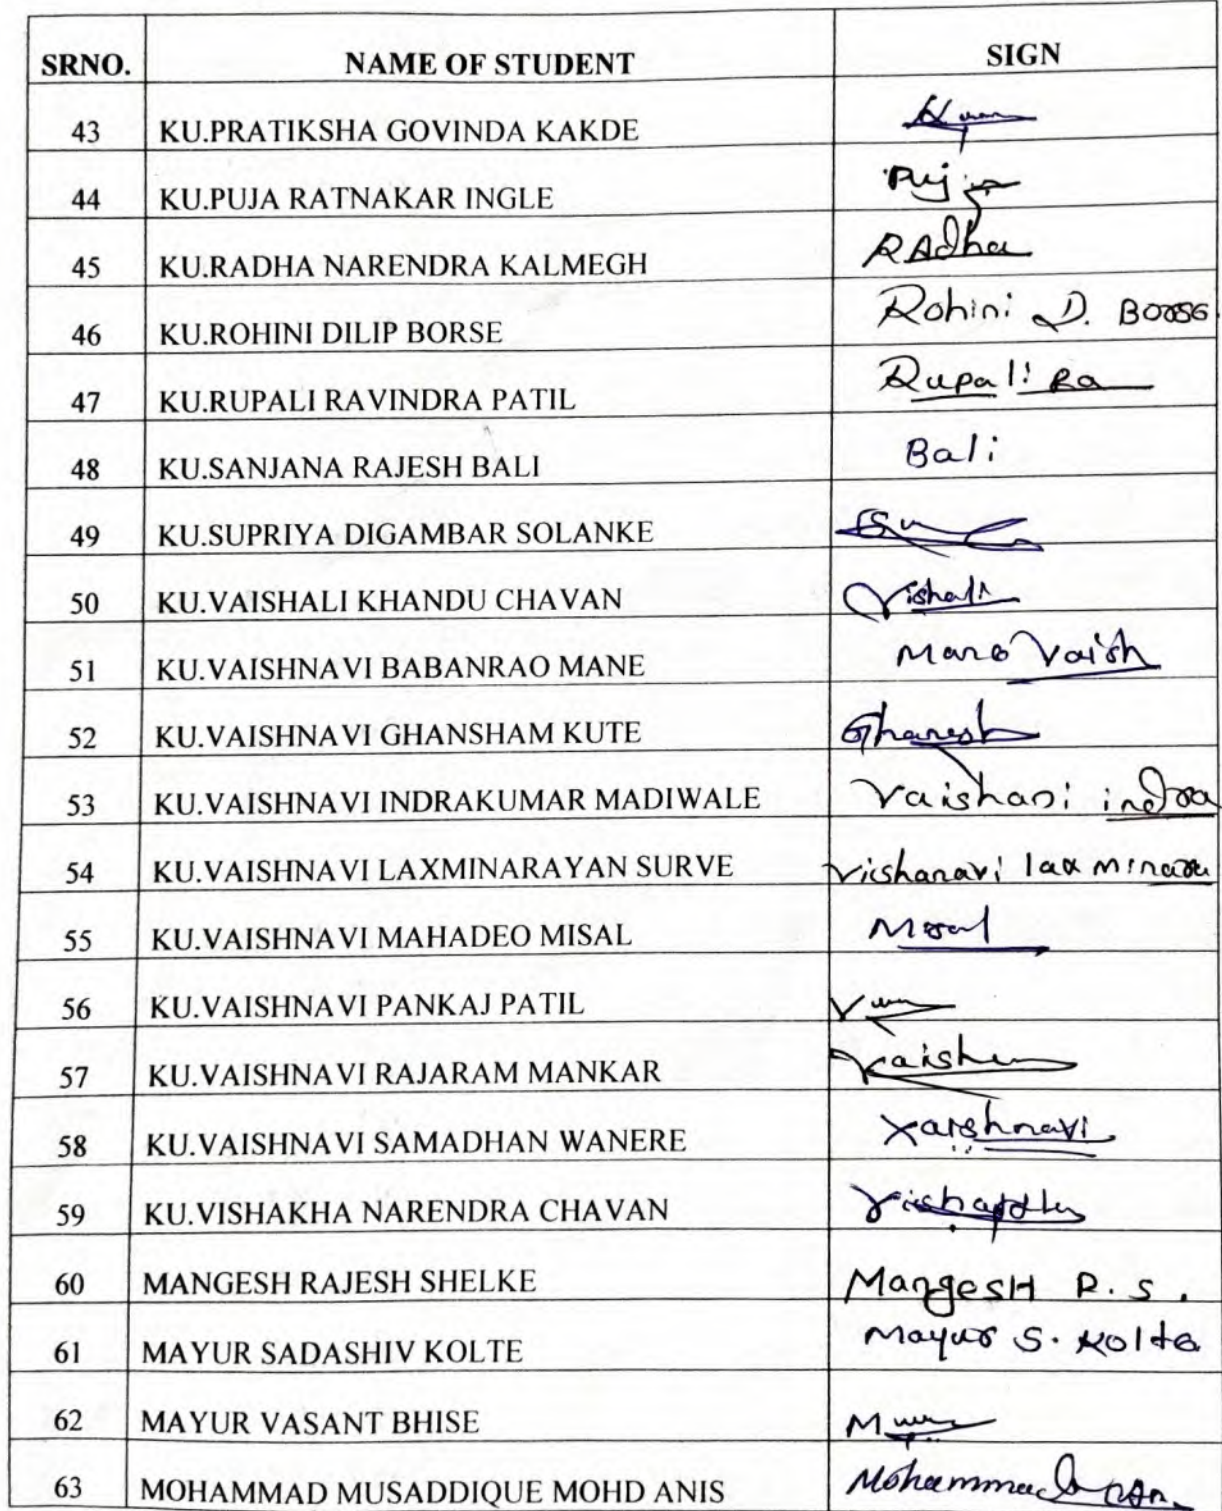 SRNO. NAME OF STUDENT SIGN
43 KU.PRATIKSHA GOVINDA KAKDE
44 KU.PUJA RATNAKAR INGLE Puja
45 KU.RADHA NARENDRA KALMEGH RAdha
46 KU.ROHINI DILIP BORSE Rohini D. Borse
47 KU.RUPALI RAVINDRA PATIL Rupali Ra
48 KU.SANJANA RAJESH BALI Bali
49 KU.SUPRIYA DIGAMBAR SOLANKE
50 KU.VAISHALI KHANDU CHAVAN Vishali
51 KU.VAISHNAVI BABANRAO MANE Mane Vaish
52 KU.VAISHNAVI GHANSHAM KUTE
53 KU.VAISHNAVI INDRAKUMAR MADIWALE Vaishani indra
54 KU.VAISHNAVI LAXMINARAYAN SURVE Vishanavi laxminara
55 KU.VAISHNAVI MAHADEO MISAL Misal
56 KU.VAISHNAVI PANKAJ PATIL
57 KU.VAISHNAVI RAJARAM MANKAR
58 KU.VAISHNAVI SAMADHAN WANERE Vaishnavi
59 KU.VISHAKHA NARENDRA CHAVAN
60 MANGESH RAJESH SHELKE MangesH R.S.
61 MAYUR SADASHIV KOLTE Mayur S. Kolte
62 MAYUR VASANT BHISE
63 MOHAMMAD MUSADDIQUE MOHD ANIS Mohammad